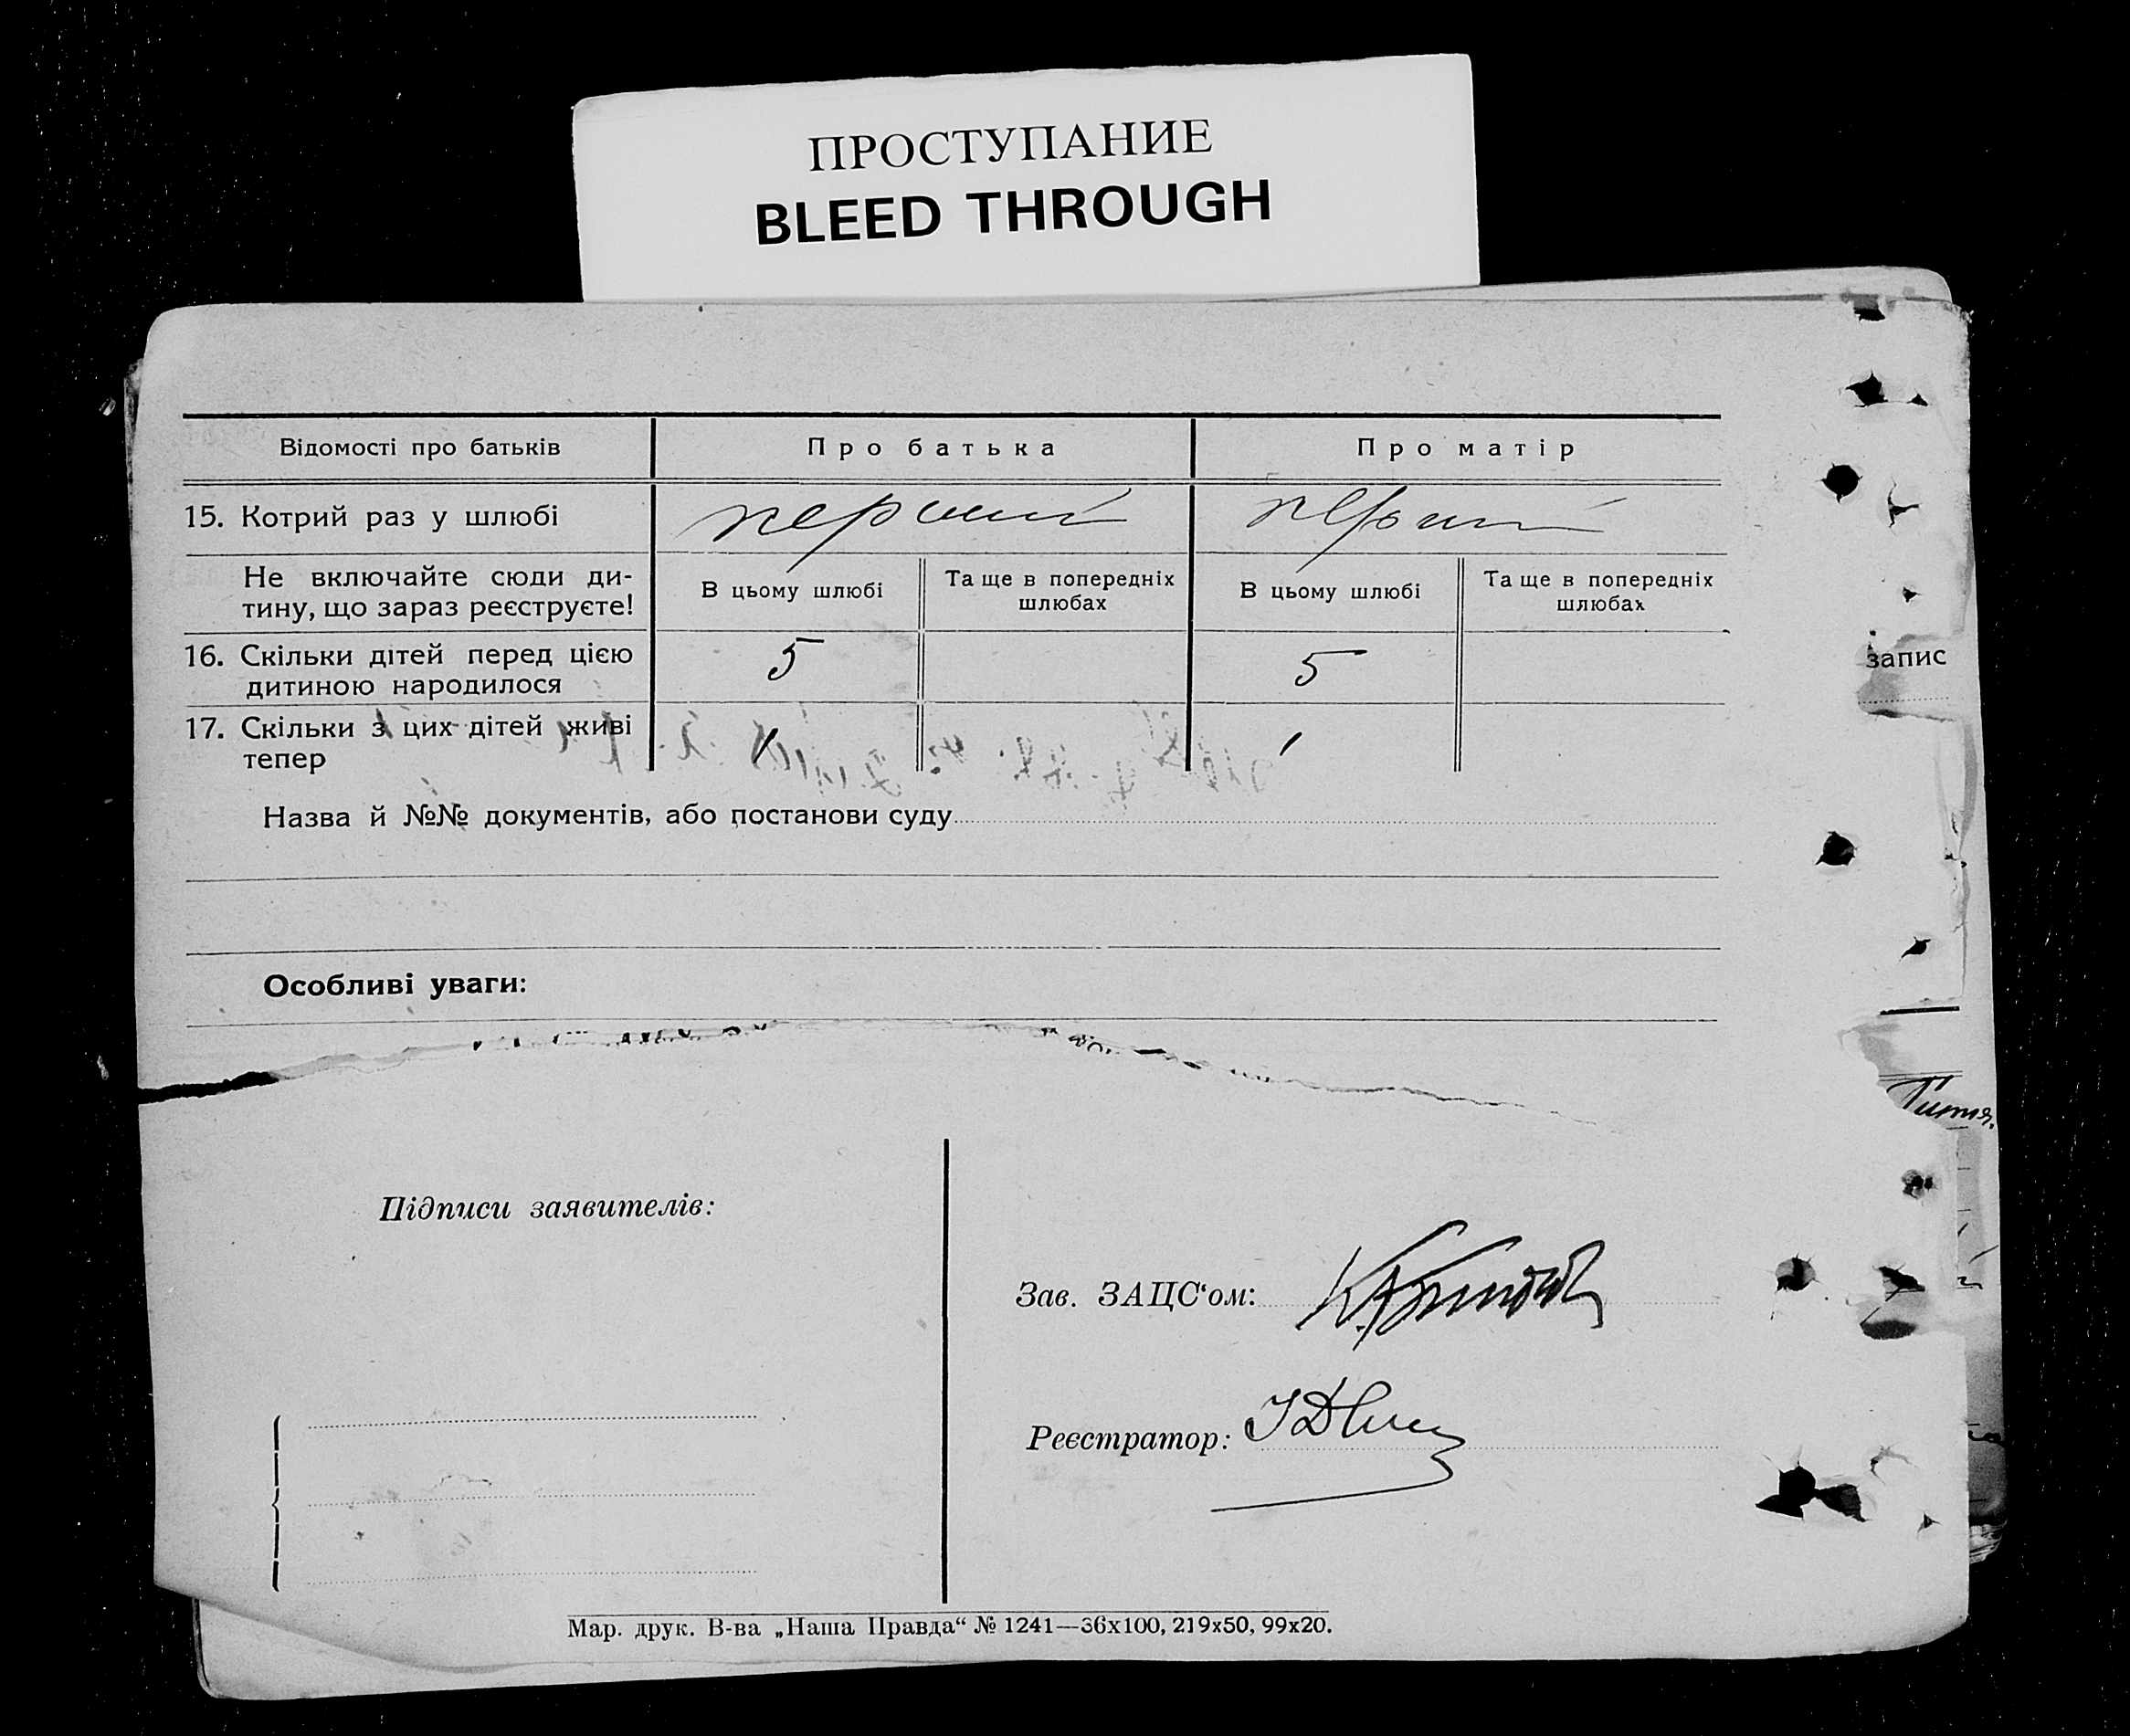 ПРОСТУПАНИЕ
BLEED THROUGH
Відомості про батьків
Про батька
Про матір
15. Котрий раз у шлюбі
перший
перший
Не включайте сюди ди-
тину, що зараз реєструєте!
В цьому шлюбі
Та ще в попередніх
шлюбах
В цьому шлюбі
Та ще в попередніх
шлюбах
16. Скільки дітей перед цією
дитиною народилося
5
5
17. Скільки з цих дітей живі
тепер
запис
Назва й №№ документів, або постанови суду
Особливі уваги:
Підписи заявителів:
Зав. ЗАЦС‘ом:
Реєстратор:
Мар. друк. В-ва „Наша Правда“ № 1241—36х100, 219х50, 99х20.